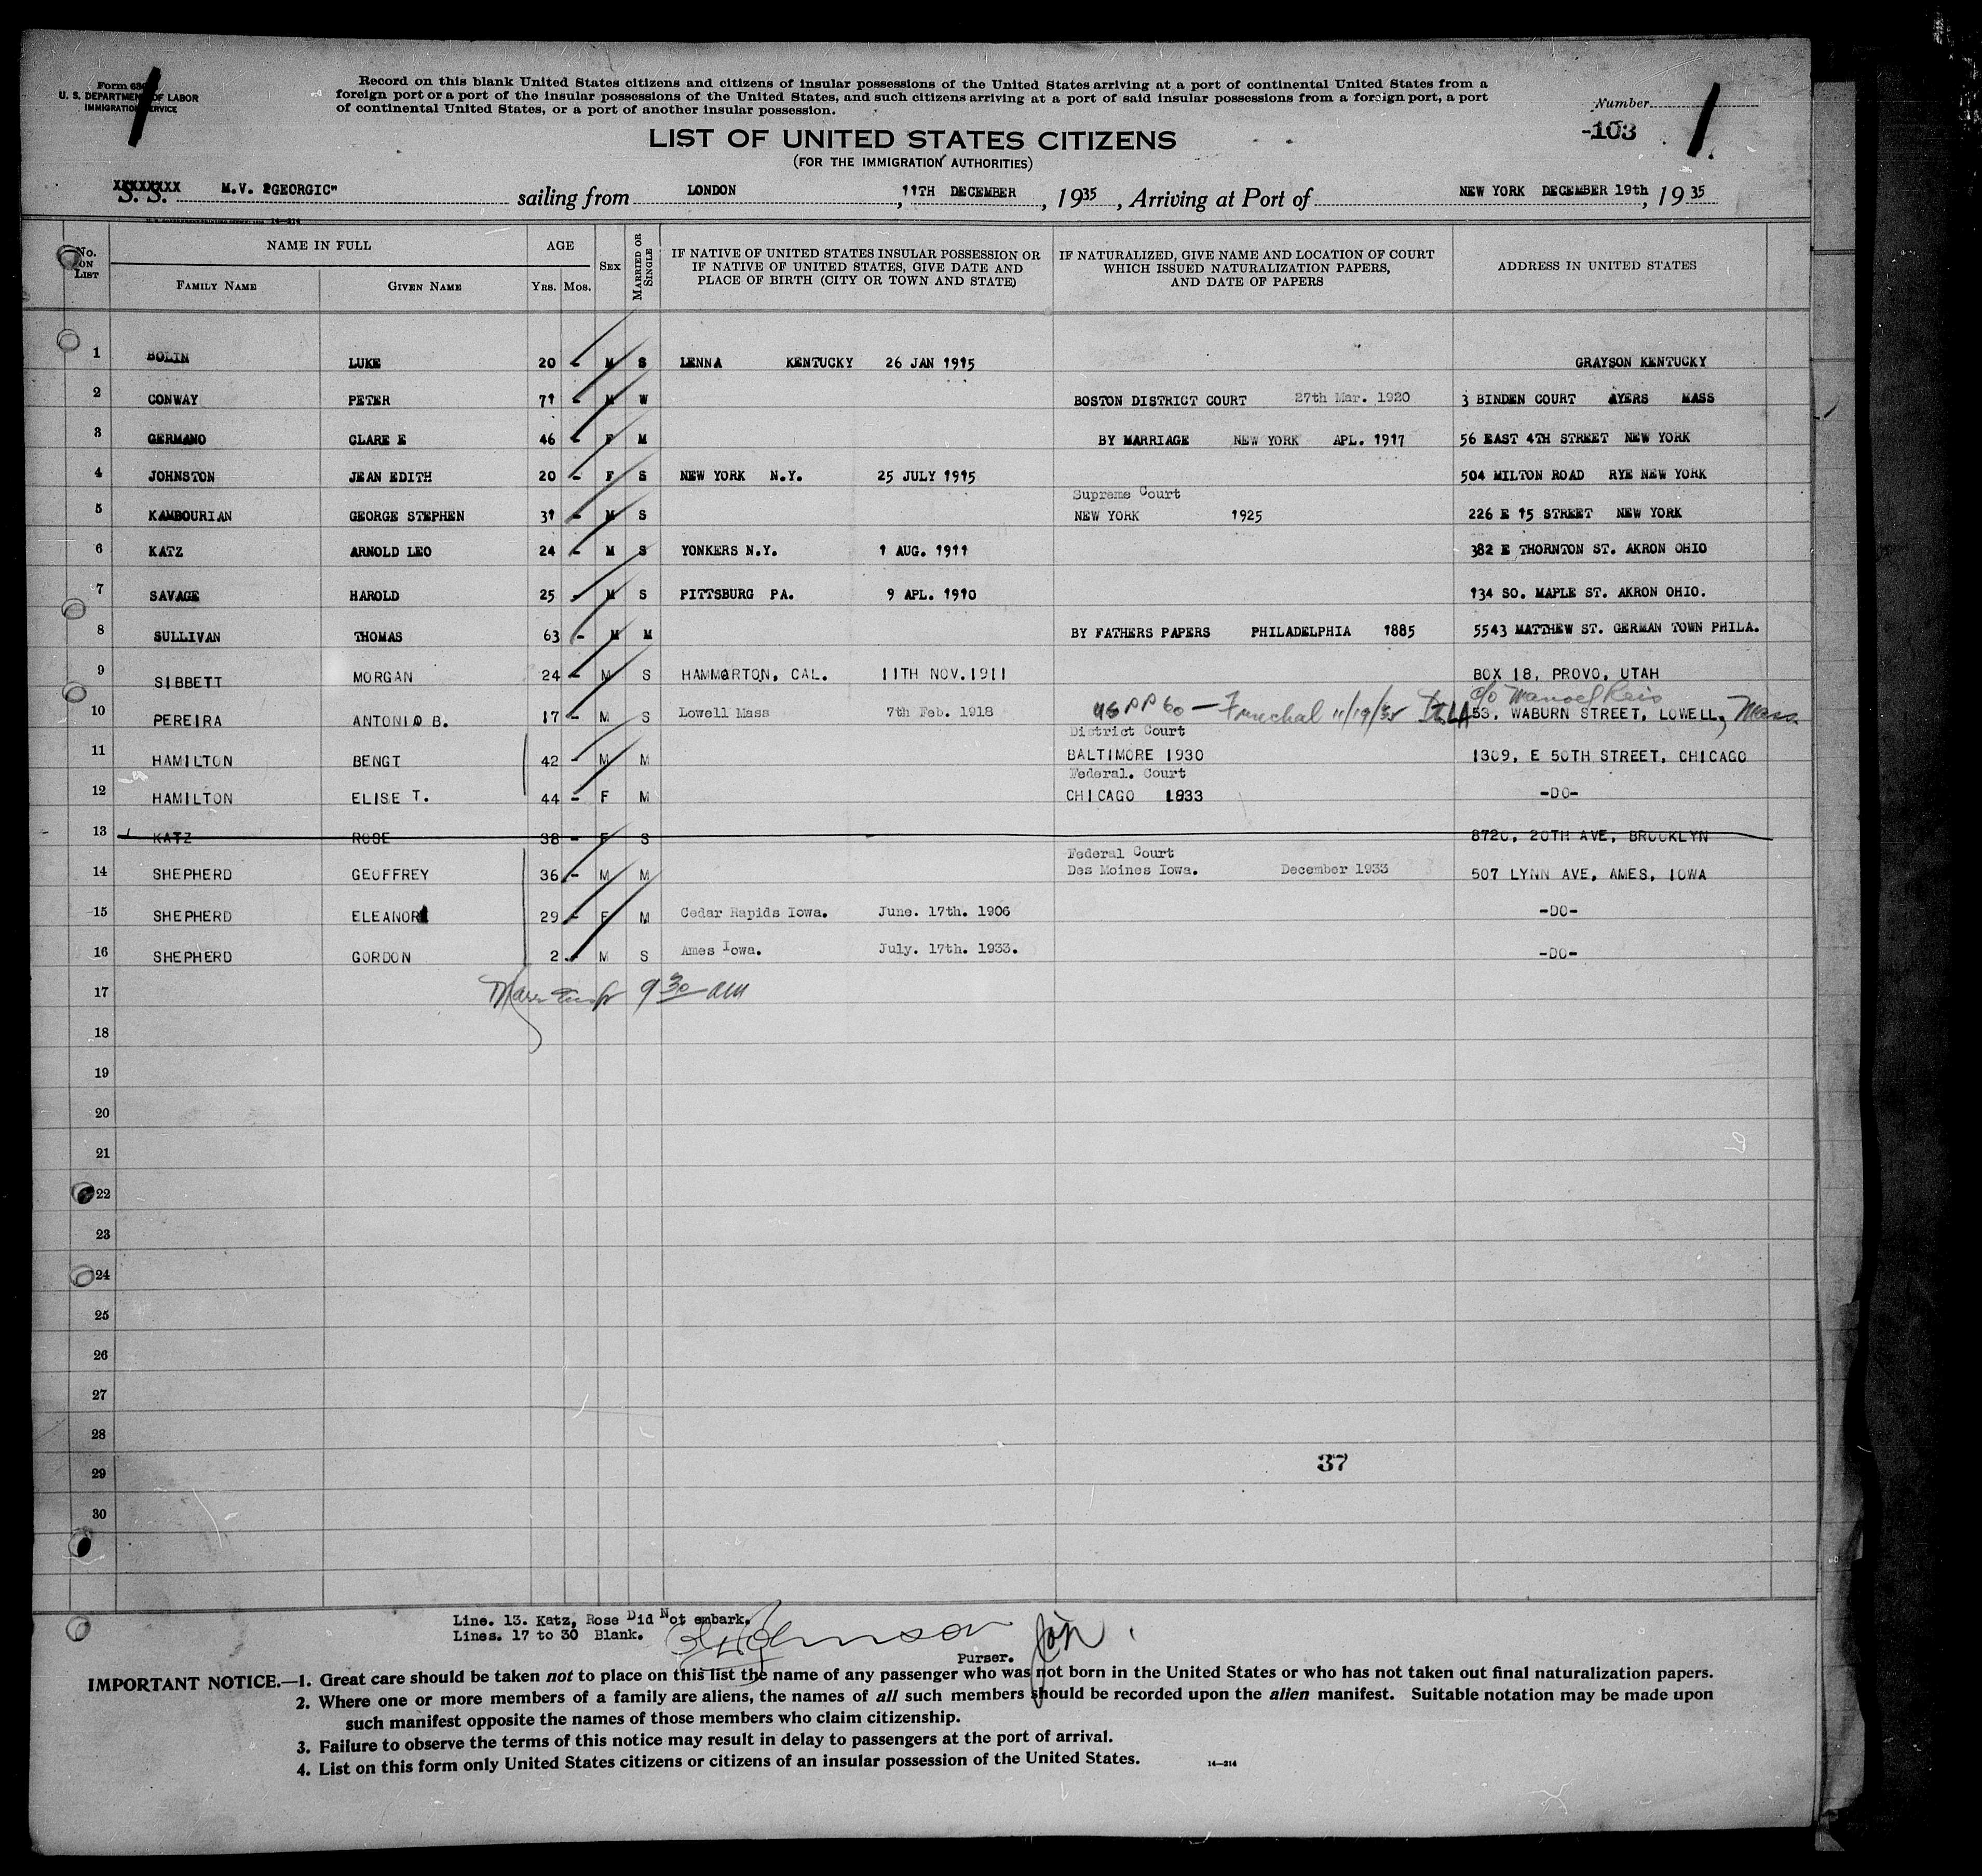 Form 630
U. S. DEPARTMENT OF LABOR
IMMIGRATION SERVICE
Record on this blank United States citizens and citizens of insular possessions of the United States arriving at a port of continental United States from a
foreign port or a port of the insular possessions of the United States, and such citizens arriving at a port of said insular possessions from a foreign port, a port
of continental United States, or a port of another insular possession.
Number
-103
LIST OF UNITED STATES CITIZENS
(FOR THE IMMIGRATION AUTHORITIES)
S. S. M.V. "GEORGIC" sailing from LONDON, 11TH DECEMBER, 1935, Arriving at Port of NEW YORK DECEMBER 19th, 1935
No. ON LIST
NAME IN FULL
FAMILY NAME GIVEN NAME
AGE
YRS. MOS.
SEX
MARRIED OR SINGLE
IF NATIVE OF UNITED STATES INSULAR POSSESSION OR
IF NATIVE OF UNITED STATES, GIVE DATE AND
PLACE OF BIRTH (CITY OR TOWN AND STATE)
IF NATURALIZED, GIVE NAME AND LOCATION OF COURT
WHICH ISSUED NATURALIZATION PAPERS,
AND DATE OF PAPERS
ADDRESS IN UNITED STATES
1 BOLIN LUKE 20 - M S LENNA KENTUCKY 26 JAN 1915 GRAYSON KENTUCKY
2 CONWAY PETER 71 - M W BOSTON DISTRICT COURT 27th Mar. 1920 3 BINDEN COURT AYERS MASS
3 GERMANO CLARE E 46 - F M BY MARRIAGE NEW YORK APL. 1917 56 EAST 4TH STREET NEW YORK
4 JOHNSTON JEAN EDITH 20 - F S NEW YORK N.Y. 25 JULY 1915 504 MILTON ROAD RYE NEW YORK
Supreme Court
5 KAMBOURIAN GEORGE STEPHEN 31 - M S NEW YORK 1925 226 E 15 STREET NEW YORK
6 KATZ ARNOLD LEO 24 - M S YONKERS N.Y. 1 AUG. 1911 382 E THORNTON ST. AKRON OHIO
7 SAVAGE HAROLD 25 - M S PITTSBURG PA. 9 APL. 1910 134 SO. MAPLE ST. AKRON OHIO.
8 SULLIVAN THOMAS 63 - M M BY FATHERS PAPERS PHILADELPHIA 1885 5543 MATTHEW ST. GERMAN TOWN PHILA.
9 SIBBETT MORGAN 24 - M S HAMMARTON, CAL. 11TH NOV. 1911 BOX 18, PROVO, UTAH
c/o Manoel Reis
10 PEREIRA ANTONIO B. 17 - M S Lowell Mass 7th Feb. 1918 US PP 60 - Funchal 11/19/35 53, WABURN STREET, LOWELL, Mass.
District Court
11 HAMILTON BENGT 42 - M M BALTIMORE 1930 1309, E 50TH STREET, CHICAGO
Federal. Court
12 HAMILTON ELISE T. 44 - F M CHICAGO 1933 -DO-
13 KATZ ROSE 38 - F S 8720, 20TH AVE, BROOKLYN
Federal Court
14 SHEPHERD GEOFFREY 36 - M M Des Moines Iowa. December 1933 507 LYNN AVE, AMES, IOWA
15 SHEPHERD ELEANOR 29 - F M Cedar Rapids Iowa. June. 17th. 1906 -DO-
16 SHEPHERD GORDON 2 - M S Ames Iowa. July. 17th. 1933. -DO-
17 9 30 am
18
19
20
21
22
23
24
25
26
27
28
37
29
30
Line. 13. Katz, Rose Did Not embark.
Lines. 17 to 30 Blank.
Purser.
IMPORTANT NOTICE.—1. Great care should be taken not to place on this list the name of any passenger who was not born in the United States or who has not taken out final naturalization papers.
2. Where one or more members of a family are aliens, the names of all such members should be recorded upon the alien manifest. Suitable notation may be made upon
such manifest opposite the names of those members who claim citizenship.
3. Failure to observe the terms of this notice may result in delay to passengers at the port of arrival.
4. List on this form only United States citizens or citizens of an insular possession of the United States.
14—214